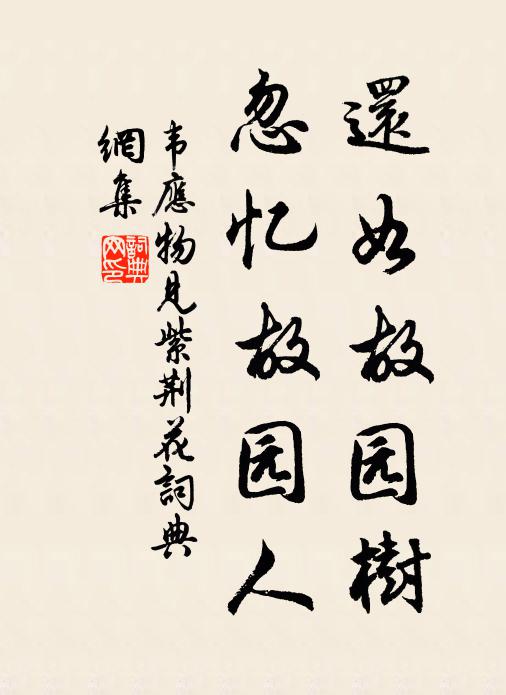 還如故园樹
忽忆故园人
韦應物见紫荆花詞典
網集
詞典
网印